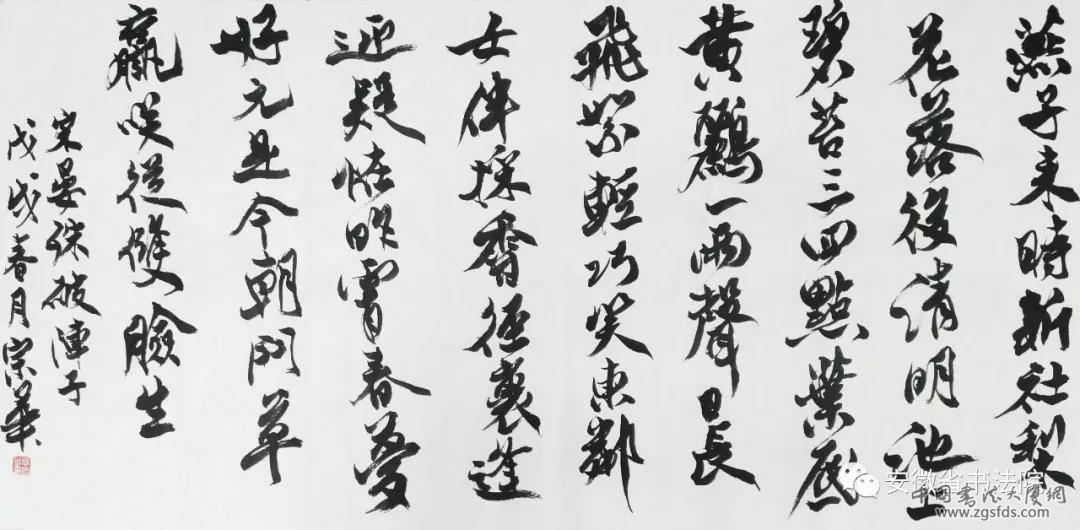 燕子来時新社梨
花落後清明池上
碧苔三四點葉底
黄鸝一兩聲日長
飛絮輕巧笑東鄰
女伴採香徑裏逢
迎疑怪昨宵春夢
好元是今朝鬥草
贏咲從雙臉生
宋晏殊破陣子
戊戌春月宗華
安徽省书法院
中国書法大厦網
www.zgsfds.com